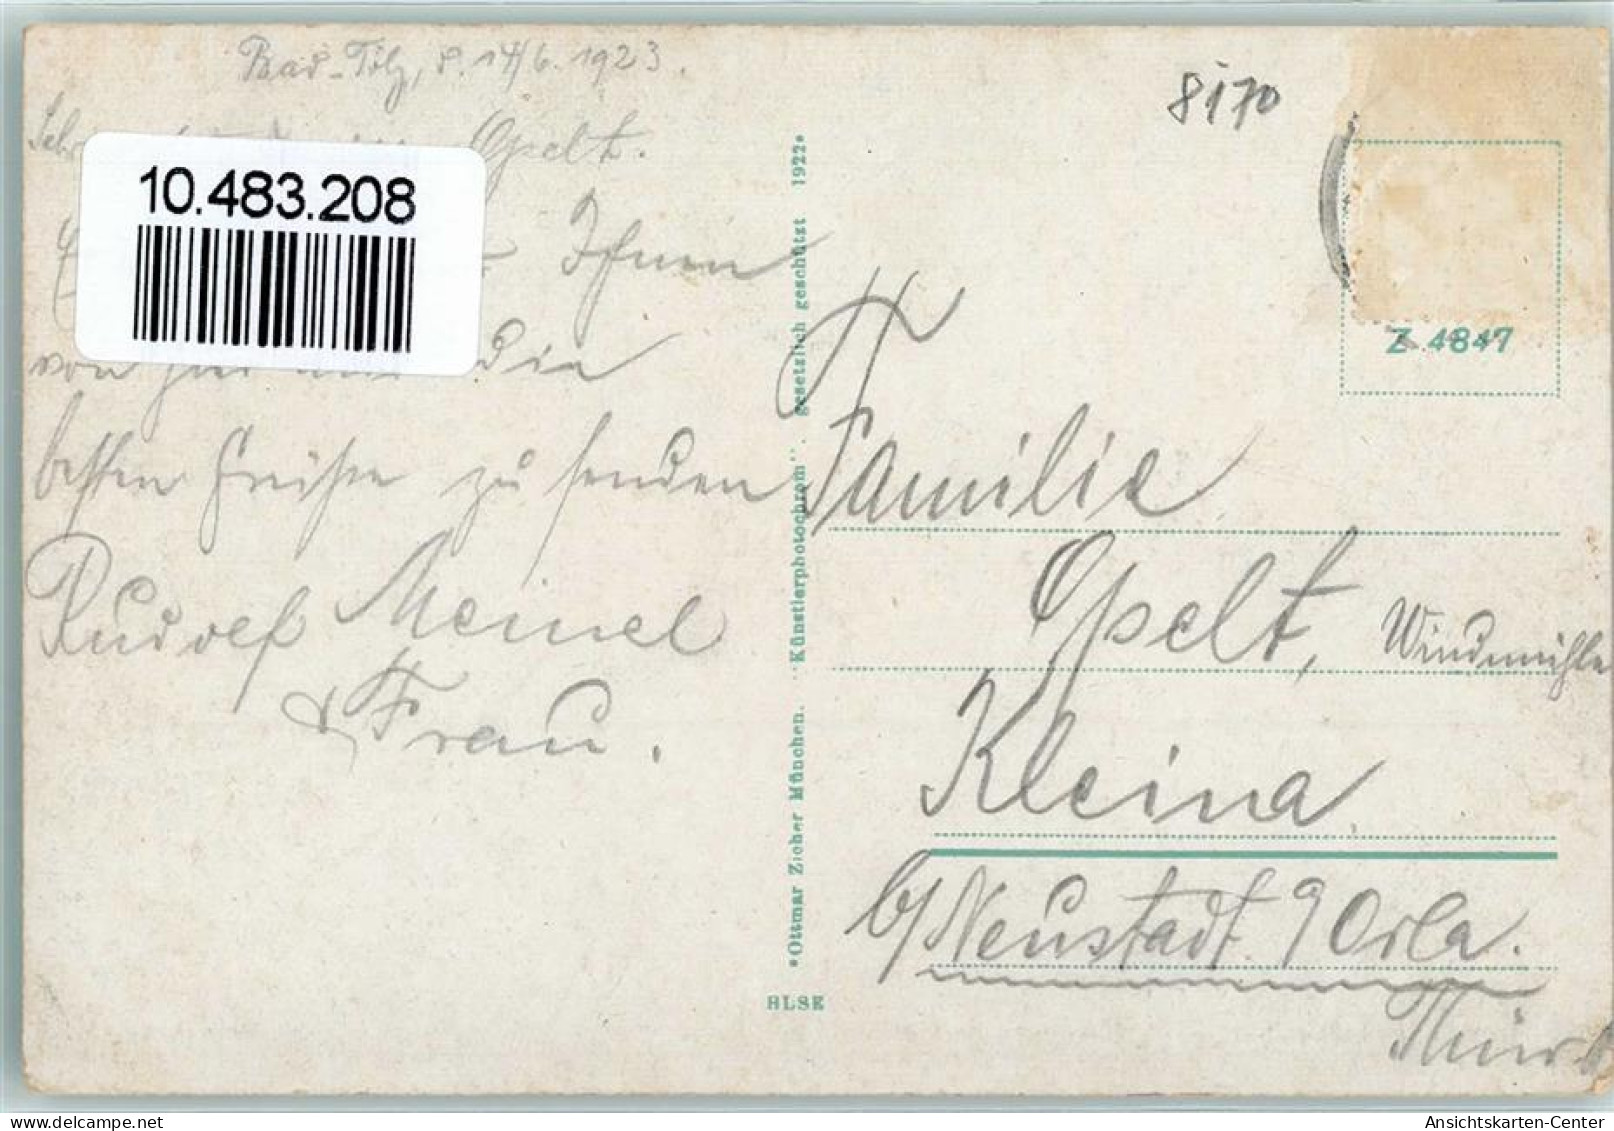 Bad-Tölz, d. 14/6. 1923.
Opelt.
10.483.208
Ihnen
von hier aus die
besten Grüße zu senden
Rudolf Meinel
& Frau.
8170
Z 4847
Familie
Opelt, Windmühle
Kleina
b/Neustadt a/Orla.
Thür
*Ottmar Zieher München. "Künstlerphotochrom" gesetzlich geschützt 1922*
HLSE
delcampe.net
Ansichtskarten-Center